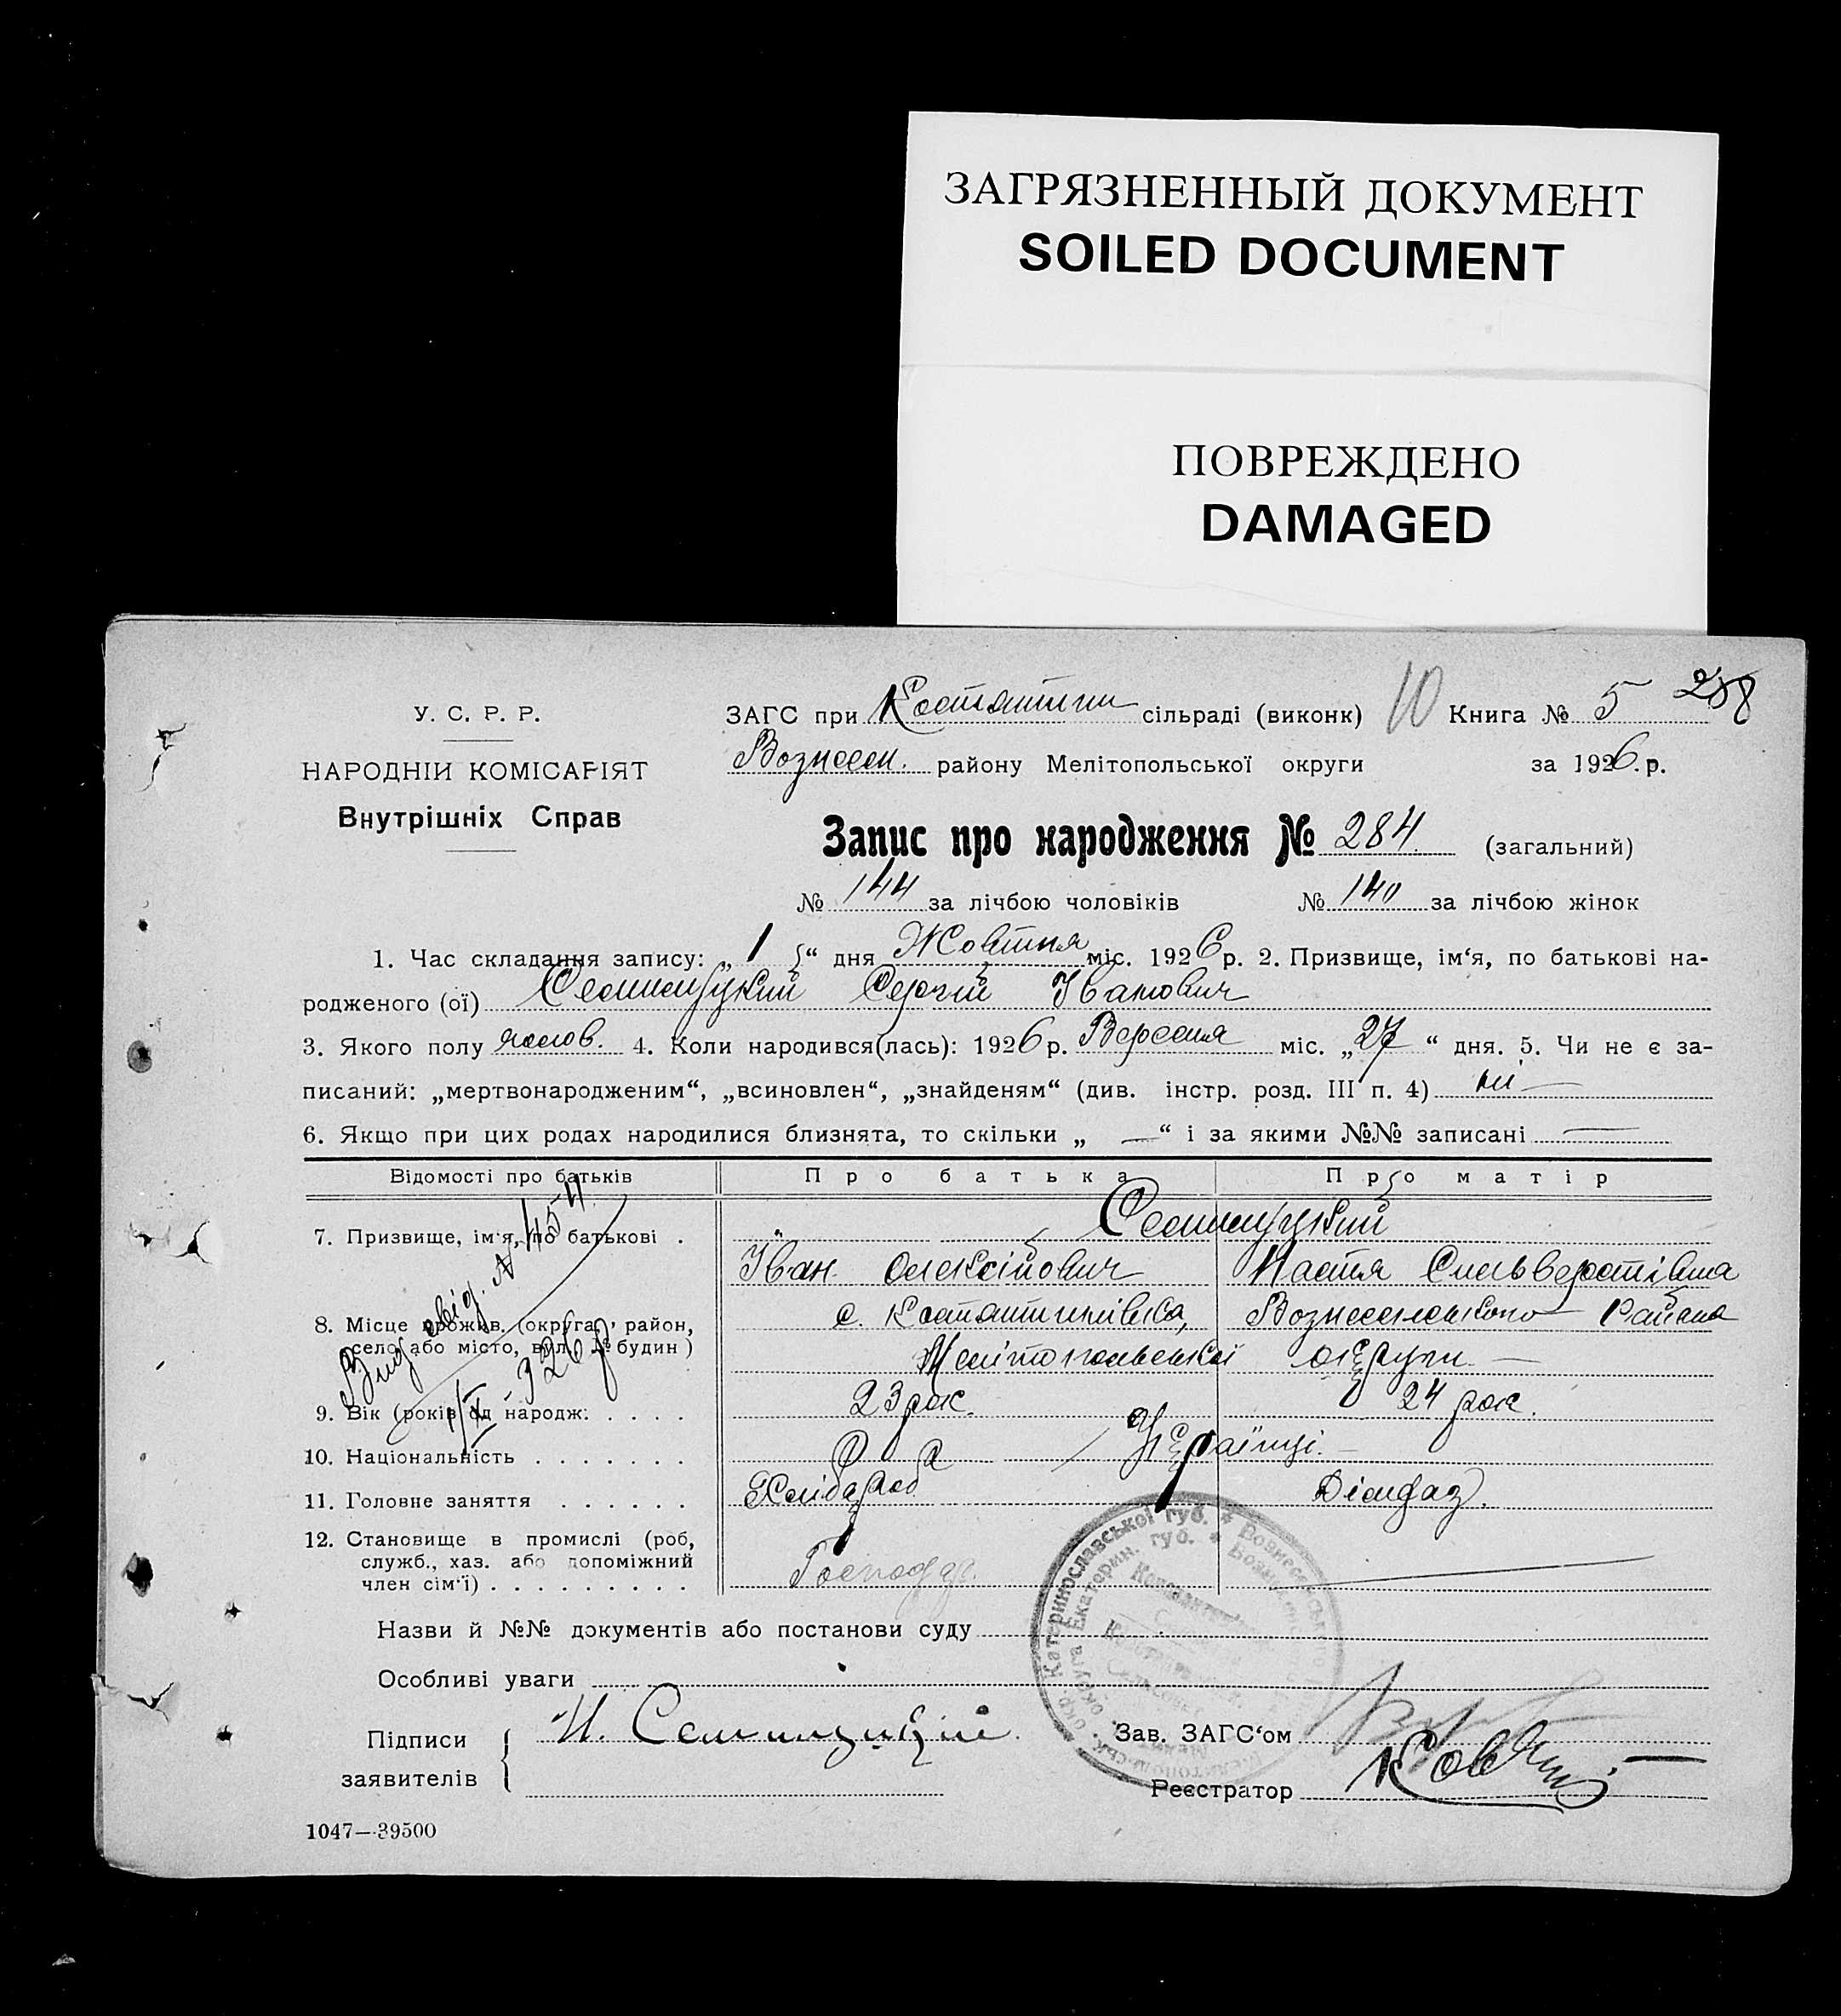 ЗАГРЯЗНЕННЫЙ ДОКУМЕНТ
SOILED DOCUMENT
ПОВРЕЖДЕНО
DAMAGED
У. С. Р. Р.
НАРОДНІЙ КОМІСАРІЯТ
Внутрішніх Справ
ЗАГС при Костянтин сільраді (виконк) 10 Книга № 5 288
Вознесен. району Мелітопольської округи за 1926.р.
Запис про народження № 284. (загальний)
№ 144 за лічбою чоловіків № 140 за лічбою жінок
1. Час складання запису: „ 1 “ дня Жовтня міс. 1926 р. 2. Призвище, ім‘я, по батькові на-
родженого (ої) Сергій Іванович
3. Якого полу чолов. 4. Коли народився(лась): 1926 р. Вересня міс. „27“ дня. 5. Чи не є за-
писаний: „мертвонародженим“, „всиновлен“, „знайденям“ (див. інстр. розд. III п. 4) ні —
6. Якщо при цих родах народилися близнята, то скільки „ — “ і за якими №№ записані —
Відомості про батьків Про батька Про матір
7. Призвище, ім‘я, по батькові .
Іван Олексійович Настя Сильверстівна
8. Місце прожив. (округа, район, с. Костянтинівка, Вознесенського Району
село або місто, вул. № будин) Мелітопольської округи —
9. Вік (років од народж. . . . . 23 рок. 24 рок.
10. Національність . . . . . . . Українці. —
11. Головне заняття . . . . . . Хлібороб
12. Становище в промислі (роб,
служб., хаз. або допоміжний Господар.
член сім‘ї) . . . . . . . . .
Вид. свід. № 454
1/X 926 р
Назви й №№ документів або постанови суду
Особливі уваги
Підписи И.
заявителів
Зав. ЗАГС‘ом
Реєстратор
Катеринославської губ.
Екатерин. губ.
1047—39500